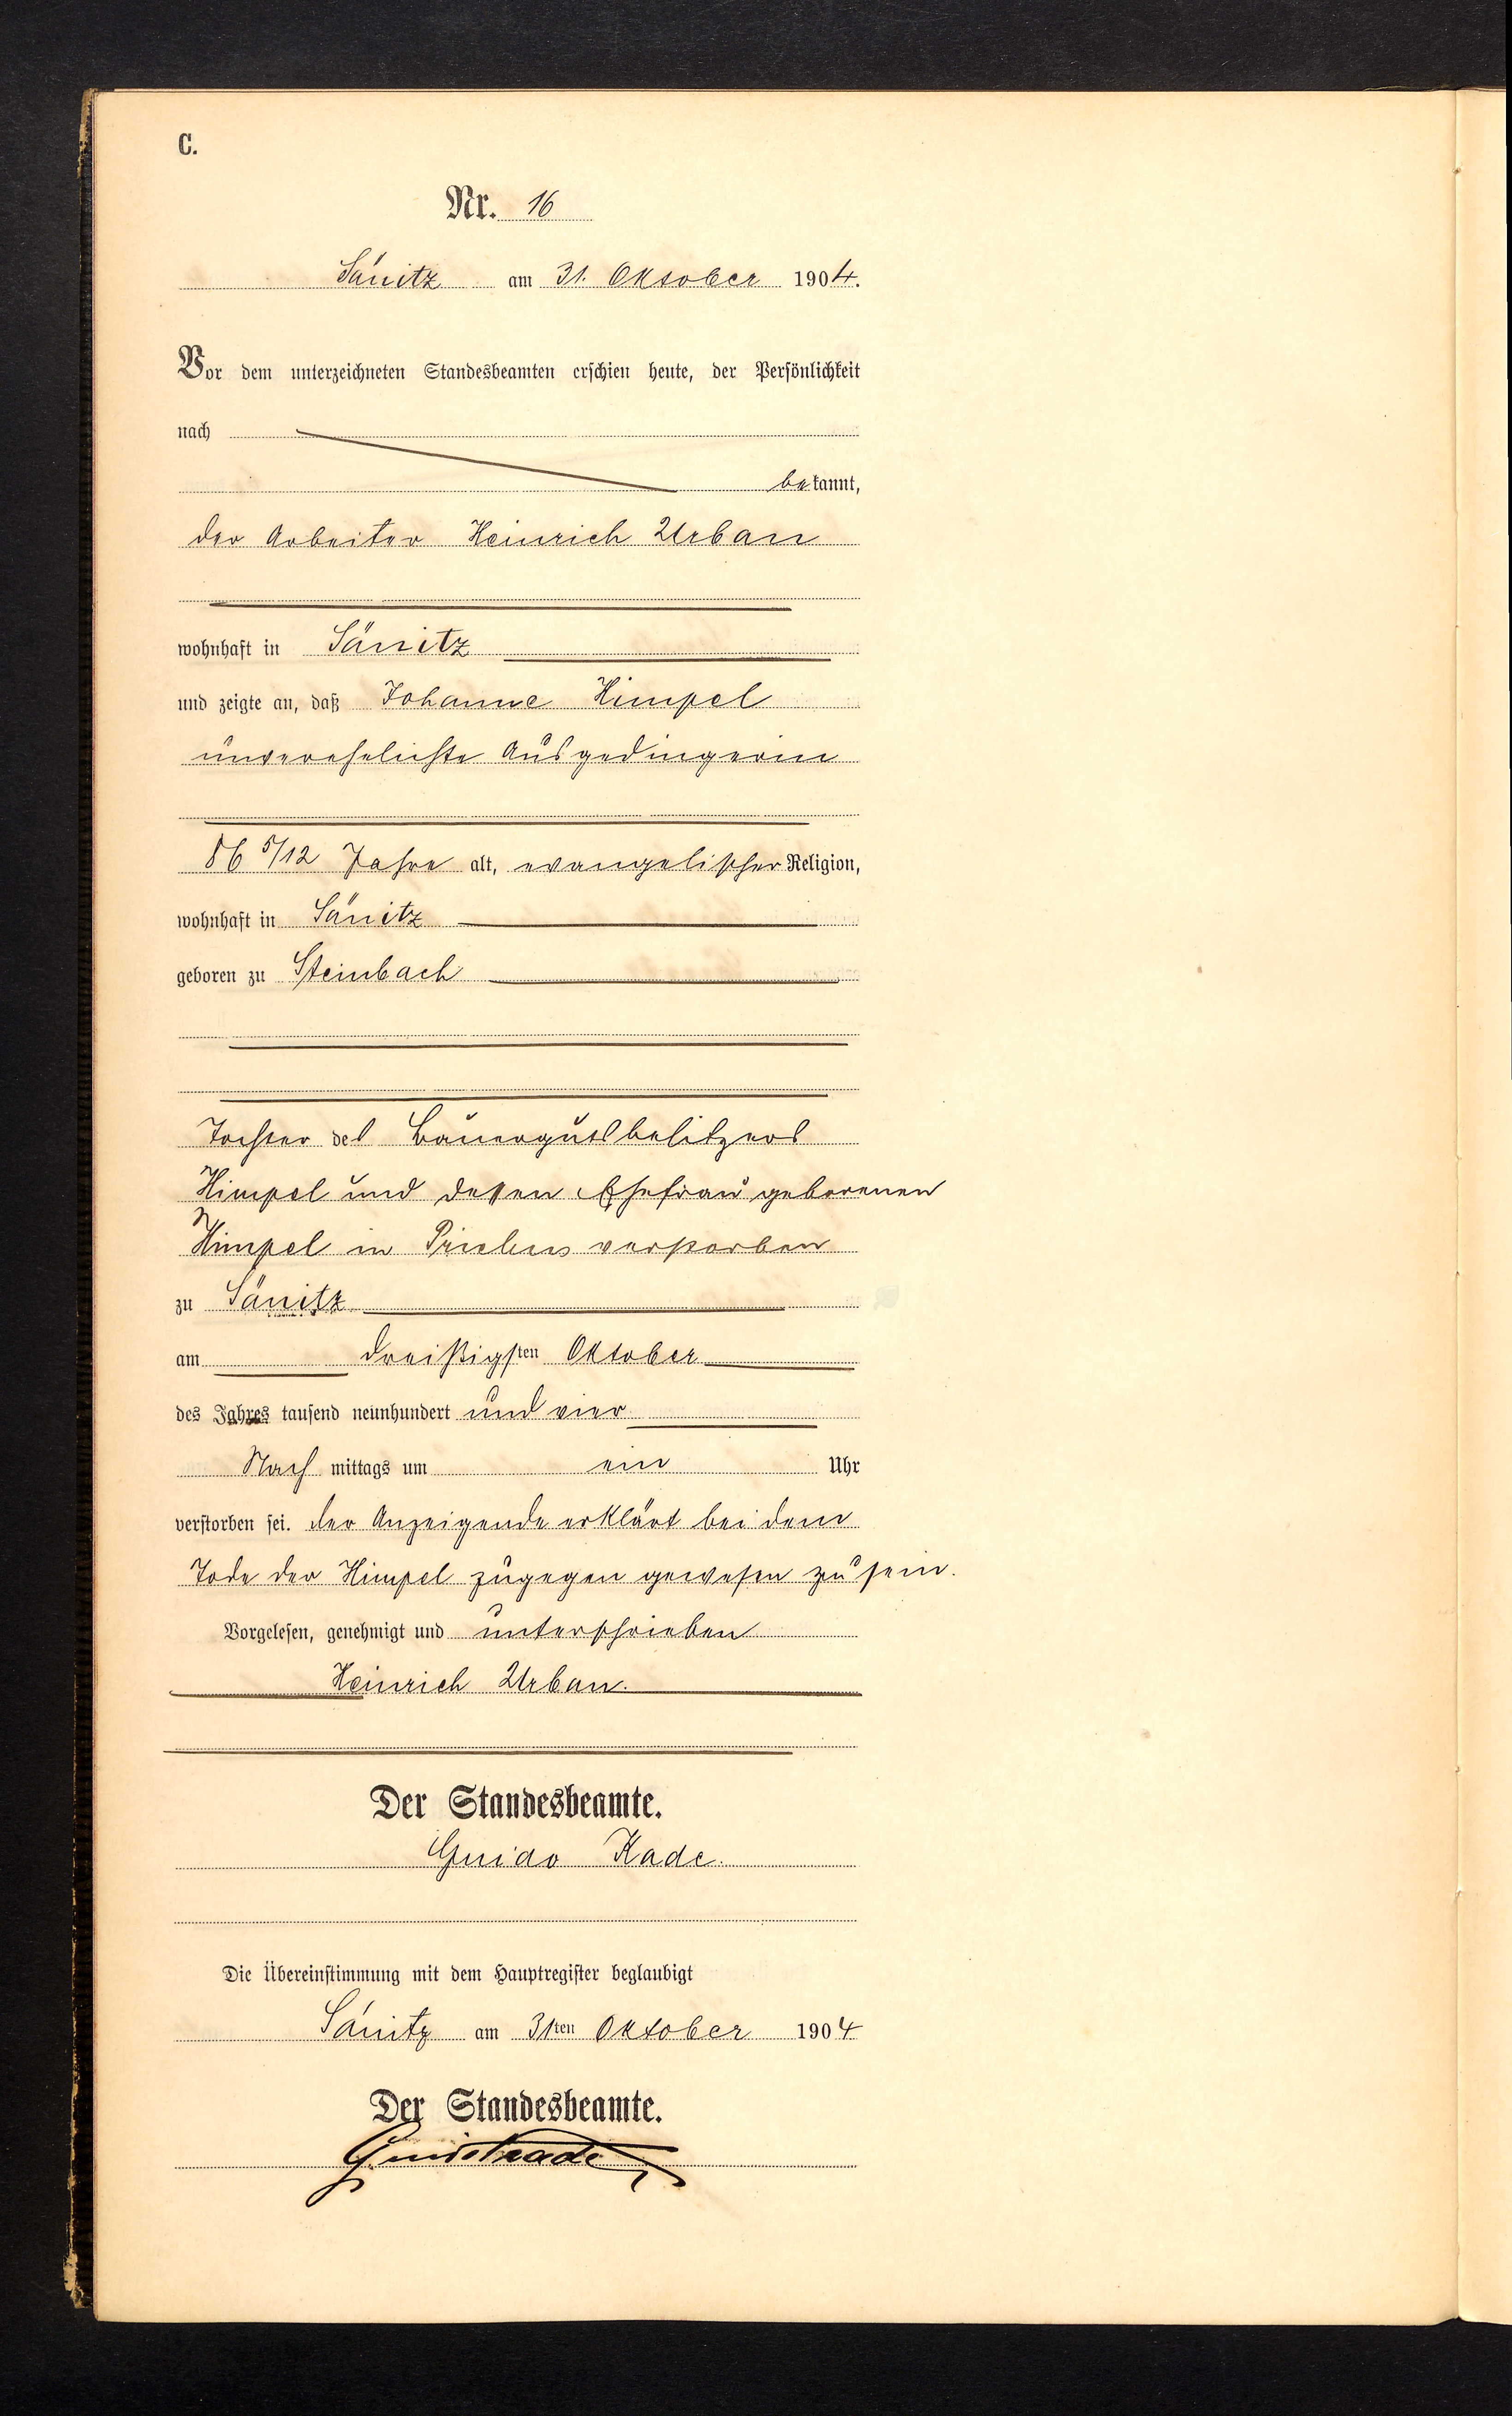 C.
Nr. 16
Sänitz am 31. Oktober 1904.
Vor dem unterzeichneten Standesbeamten erschien heute, der Persönlichkeit
nach
bekannt,
der Arbeiter Heinrich Urban
wohnhaft in Sänitz
und zeigte an, daß Johanne Himpel
unverehelichte Ausgedingerin
86 5/12 Jahre alt, evangelischer Religion,
wohnhaft in Sänitz
geboren zu Steinbach
Tochter des Bauergutsbesitzers
Himpel und dessen Ehefrau geborenen
Himpel in Priebus verstorben
zu Sänitz
am dreißigsten Oktober
des Jahres tausend neunhundert und vier
Nach mittags um ein Uhr
verstorben sei. der Anzeigende erklärt bei dem
Tode der Himpel zugegen gewesen zu sein.
Vorgelesen, genehmigt und unterschrieben
Heinrich Urban.
Der Standesbeamte.
Guido Kade.
Die Übereinstimmung mit dem Hauptregister beglaubigt
Sänitz am 31ten Oktober 1904
Der Standesbeamte.
Guido Kade